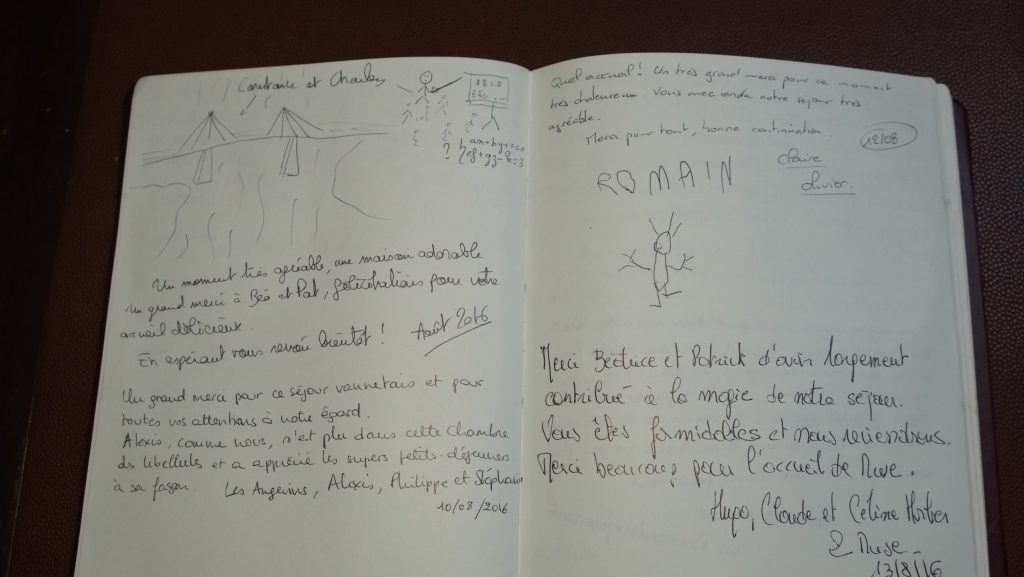 Constance et Charles
A B C D
E F G ...
? { ax+by+c=0
Un moment très agréable, une maison adorable
Un grand merci à Béa et Pat, félicitations pour votre
accueil délicieux.
En espérant vous revoir bientôt ! Août 2016
Un grand merci pour ce séjour vannetais et pour
toutes vos attentions à notre égard.
Alexis, comme nous, s'est plu dans cette chambre
des libellules et a apprécié les supers petits-déjeuners
à sa façon. Les Angevins, Alexis, Philippe et Stéphanie
10/08/2016
Quel accueil ! Un très grand merci pour ce moment
très chaleureux. Vous avez rendu notre séjour très
agréable.
Merci pour tout, bonne continuation.
12/08
Claire
Olivier.
ROMAIN
Merci Béatrice et Patrick d'avoir largement
contribué à la magie de notre séjour.
Vous êtes formidables et nous reviendrons.
Merci beaucoup pour l'accueil de Muse.
Hugo, Claude et Céline
& Muse
13/8/16